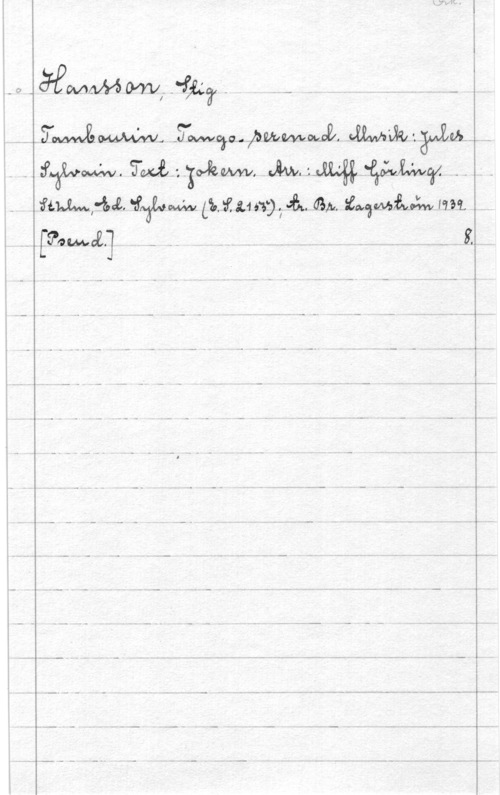 Hansson, Stig
Tambourin. Tango-serenad. Musik: Jules
Sylvain. Text: Jokern. Arr.: Miff Görling.
Sthlm, Ed. Sylvain (E.S. 2153); tr. Br. Lagerström 1939
[Pseud.] 8.